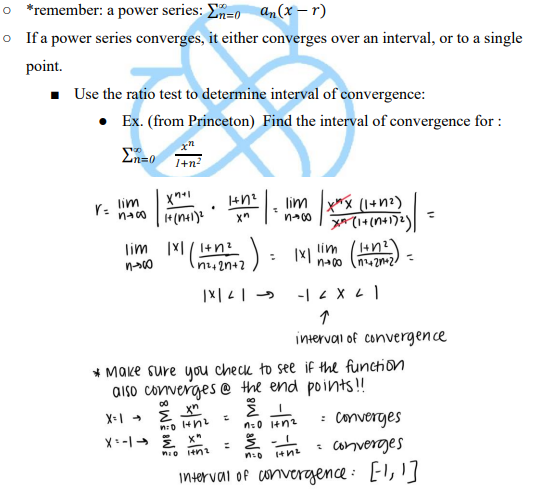 ○ *remember: a power series: ∑_{n=0}^{∞} a_n(x − r)
○ If a power series converges, it either converges over an interval, or to a single
point.
■ Use the ratio test to determine interval of convergence:
● Ex. (from Princeton) Find the interval of convergence for :
∑_{n=0}^{∞} x^n/(1+n²)
r = lim_{n→∞} | x^{n+1}/(1+(n+1)²) · (1+n²)/x^n | = lim_{n→∞} | x^n x (1+n²)/(x^n (1+(n+1)²)) | =
lim_{n→∞} |x| ( (1+n²)/(n²+2n+2) ) = |x| lim_{n→∞} ( (1+n²)/(n²+2n+2) ) =
|x| < 1 → -1 < x < 1
↑
interval of convergence
* Make sure you check to see if the function
also converges @ the end points!!
x=1 → ∑_{n=0}^{∞} x^n/(1+n²) = ∑_{n=0}^{∞} 1/(1+n²) : converges
x=-1 → ∑_{n=0}^{∞} x^n/(1+n²) = ∑_{n=0}^{∞} -1/(1+n²) : converges
interval of convergence: [-1, 1]